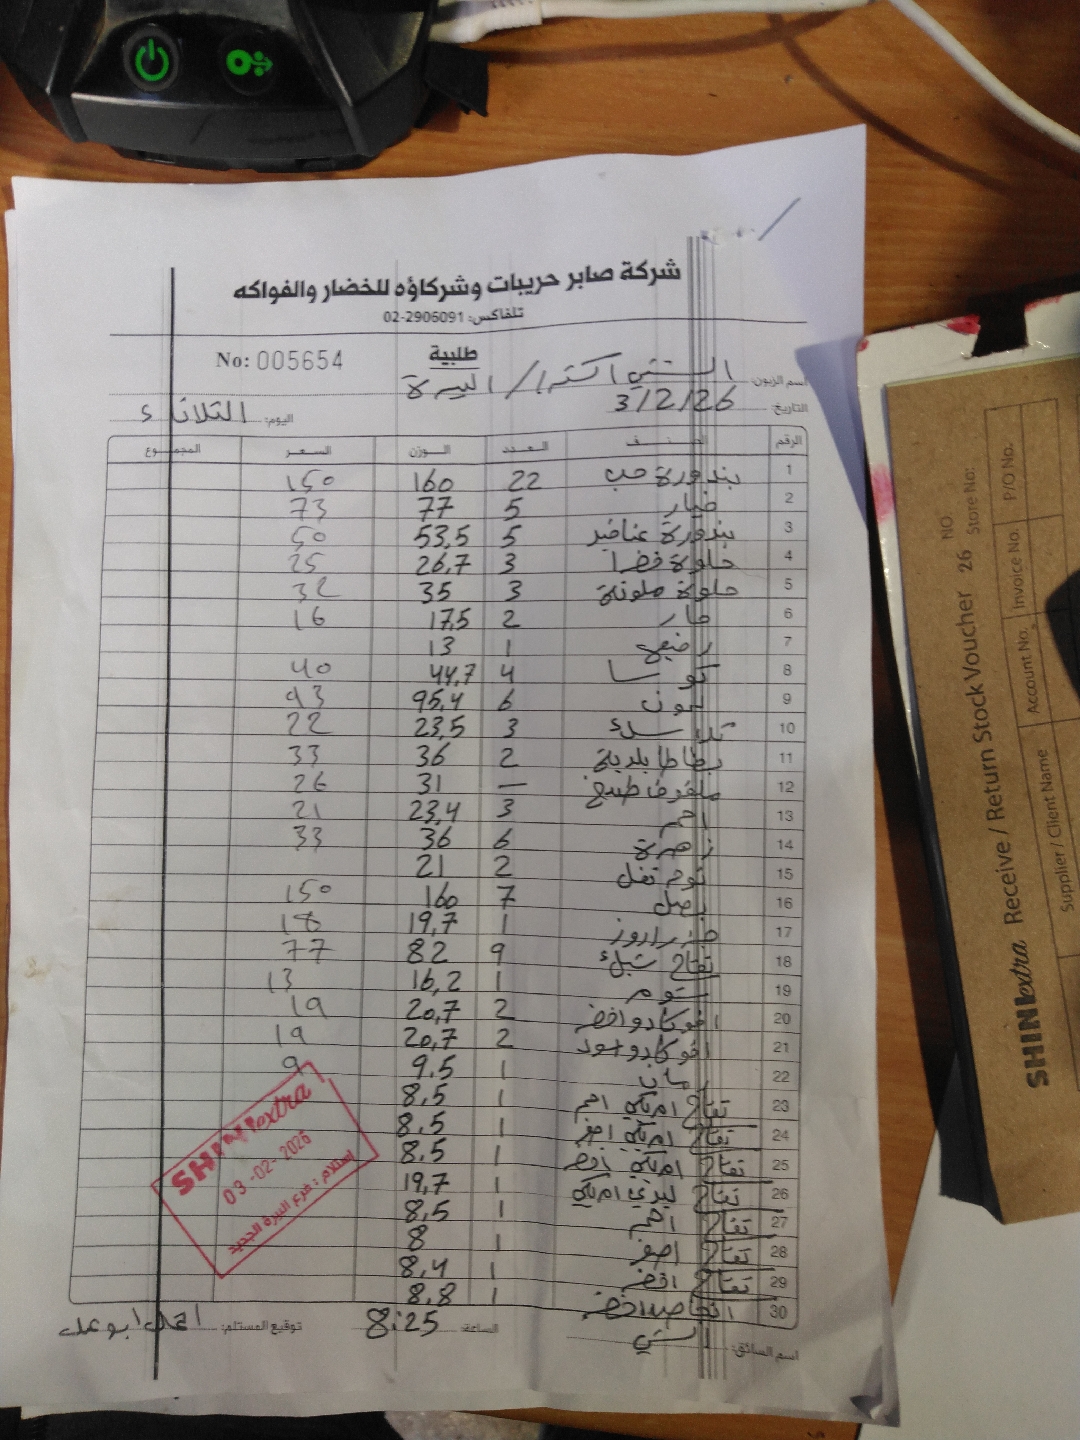 شركة صابر حريبات وشركاؤه للخضار والفواكه
تلفاكس: 02-2906091
طلبية
No: 005654
اسم الزبون: الشني اكسترا / البيرة
التاريخ: 3/2/26
اليوم: الثلاثاء
الرقم الصنف العدد الوزن السعر المجموع
1 بندورة حب 22 160 150
2 خيار 5 77 73
3 بندورة عناقيد 5 53,5 50
4 حلوة خضرا 3 26,7 25
5 حلوة ملونة 3 35 32
6 حار 2 17,5 16
7 رفيع 1 13
8 كوسا 4 44,7 40
9 ليمون 6 95,4 93
10 3 23,5 22
11 بطاطا بلدية 2 36 33
12 ملفوف طبيخ — 31 26
13 احمر 3 23,4 21
14 زهرة 6 36 33
15 ثوم تفل 2 21
16 بصل 7 160 150
17 جزر اروز 1 19,7 18
18 تفاح 9 82 77
19 1 16,2 13
20 افوكادو اخضر 2 20,7 19
21 افوكادو اسود 2 20,7 19
22 رمان 1 9.5 9
23 تفاح امريكي احمر 1 8,5
24 تفاح امريكي اصفر 1 8,5
25 تفاح امريكي اخضر 1 8,5
26 تفاح ليدي امريكي 1 19,7
27 تفاح احمر 1 8,5
28 تفاح اصفر 1 8
29 تفاح اخضر 1 8,4
30 اخضر 1 8.8
اسم السائق: الشني
الساعة: 8:25
توقيع المستلم:
SHINI extra
03-02-2026
استلام : فرع البيرة الجديد
SHINI extra Receive / Return Stock Voucher 26
NO
Store No:
Supplier / Client Name
Account No.
Invoice No.
P/O No.